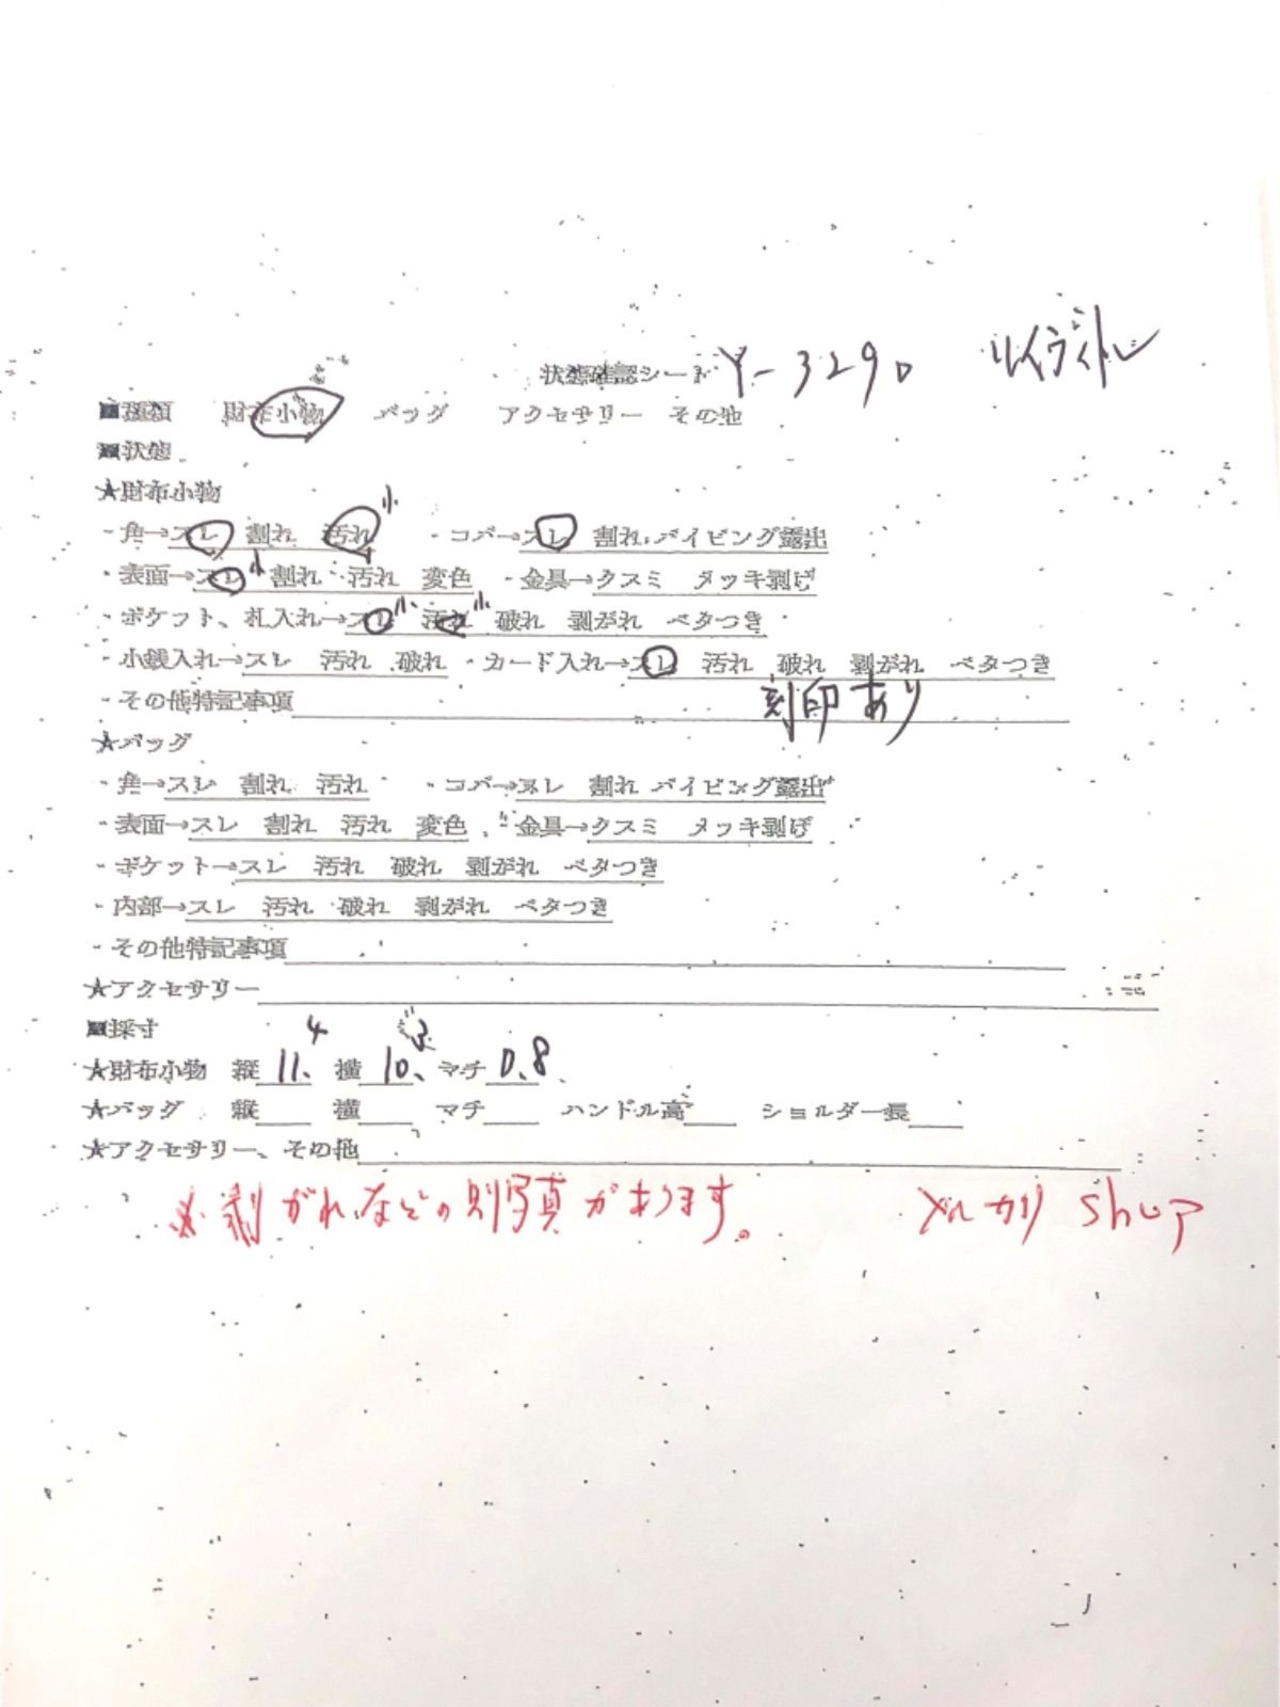 状態確認シート Y-3290 ルイヴィトン
■種類 財布小物 バッグ アクセサリー その他
■状態
★財布小物
・角→スレ 割れ 汚れ小 ・コバ→スレ 割れ パイピング露出
・表面→スレ小 割れ 汚れ 変色 ・金具→クスミ メッキ剥げ
・ポケット、札入れ→スレ小 汚れ小 破れ 剥がれ ベタつき
・小銭入れ→スレ 汚れ 破れ ・カード入れ→スレ 汚れ 破れ 剥がれ ベタつき
・その他特記事項 刻印あり
★バッグ
・角→スレ 割れ 汚れ ・コバ→スレ 割れ パイピング露出
・表面→スレ 割れ 汚れ 変色 ・金具→クスミ メッキ剥げ
・ポケット→スレ 汚れ 破れ 剥がれ ベタつき
・内部→スレ 汚れ 破れ 剥がれ ベタつき
・その他特記事項
★アクセサリー
■採寸
★財布小物 縦 11.4 横 10.3 マチ 0.8
★バッグ 縦 横 マチ ハンドル高 ショルダー長
★アクセサリー、その他
※剥がれなどの別写真があります。 メルカリ shop